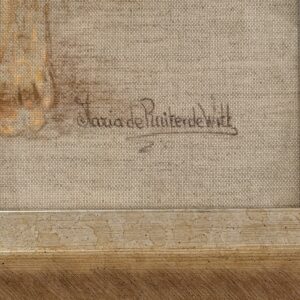 Maria de Ruiter de Witt